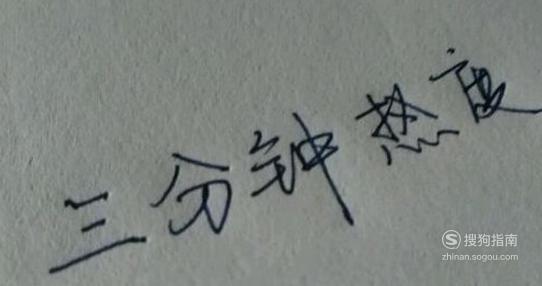 三分钟热度
搜狗指南
zhinan.sogou.com